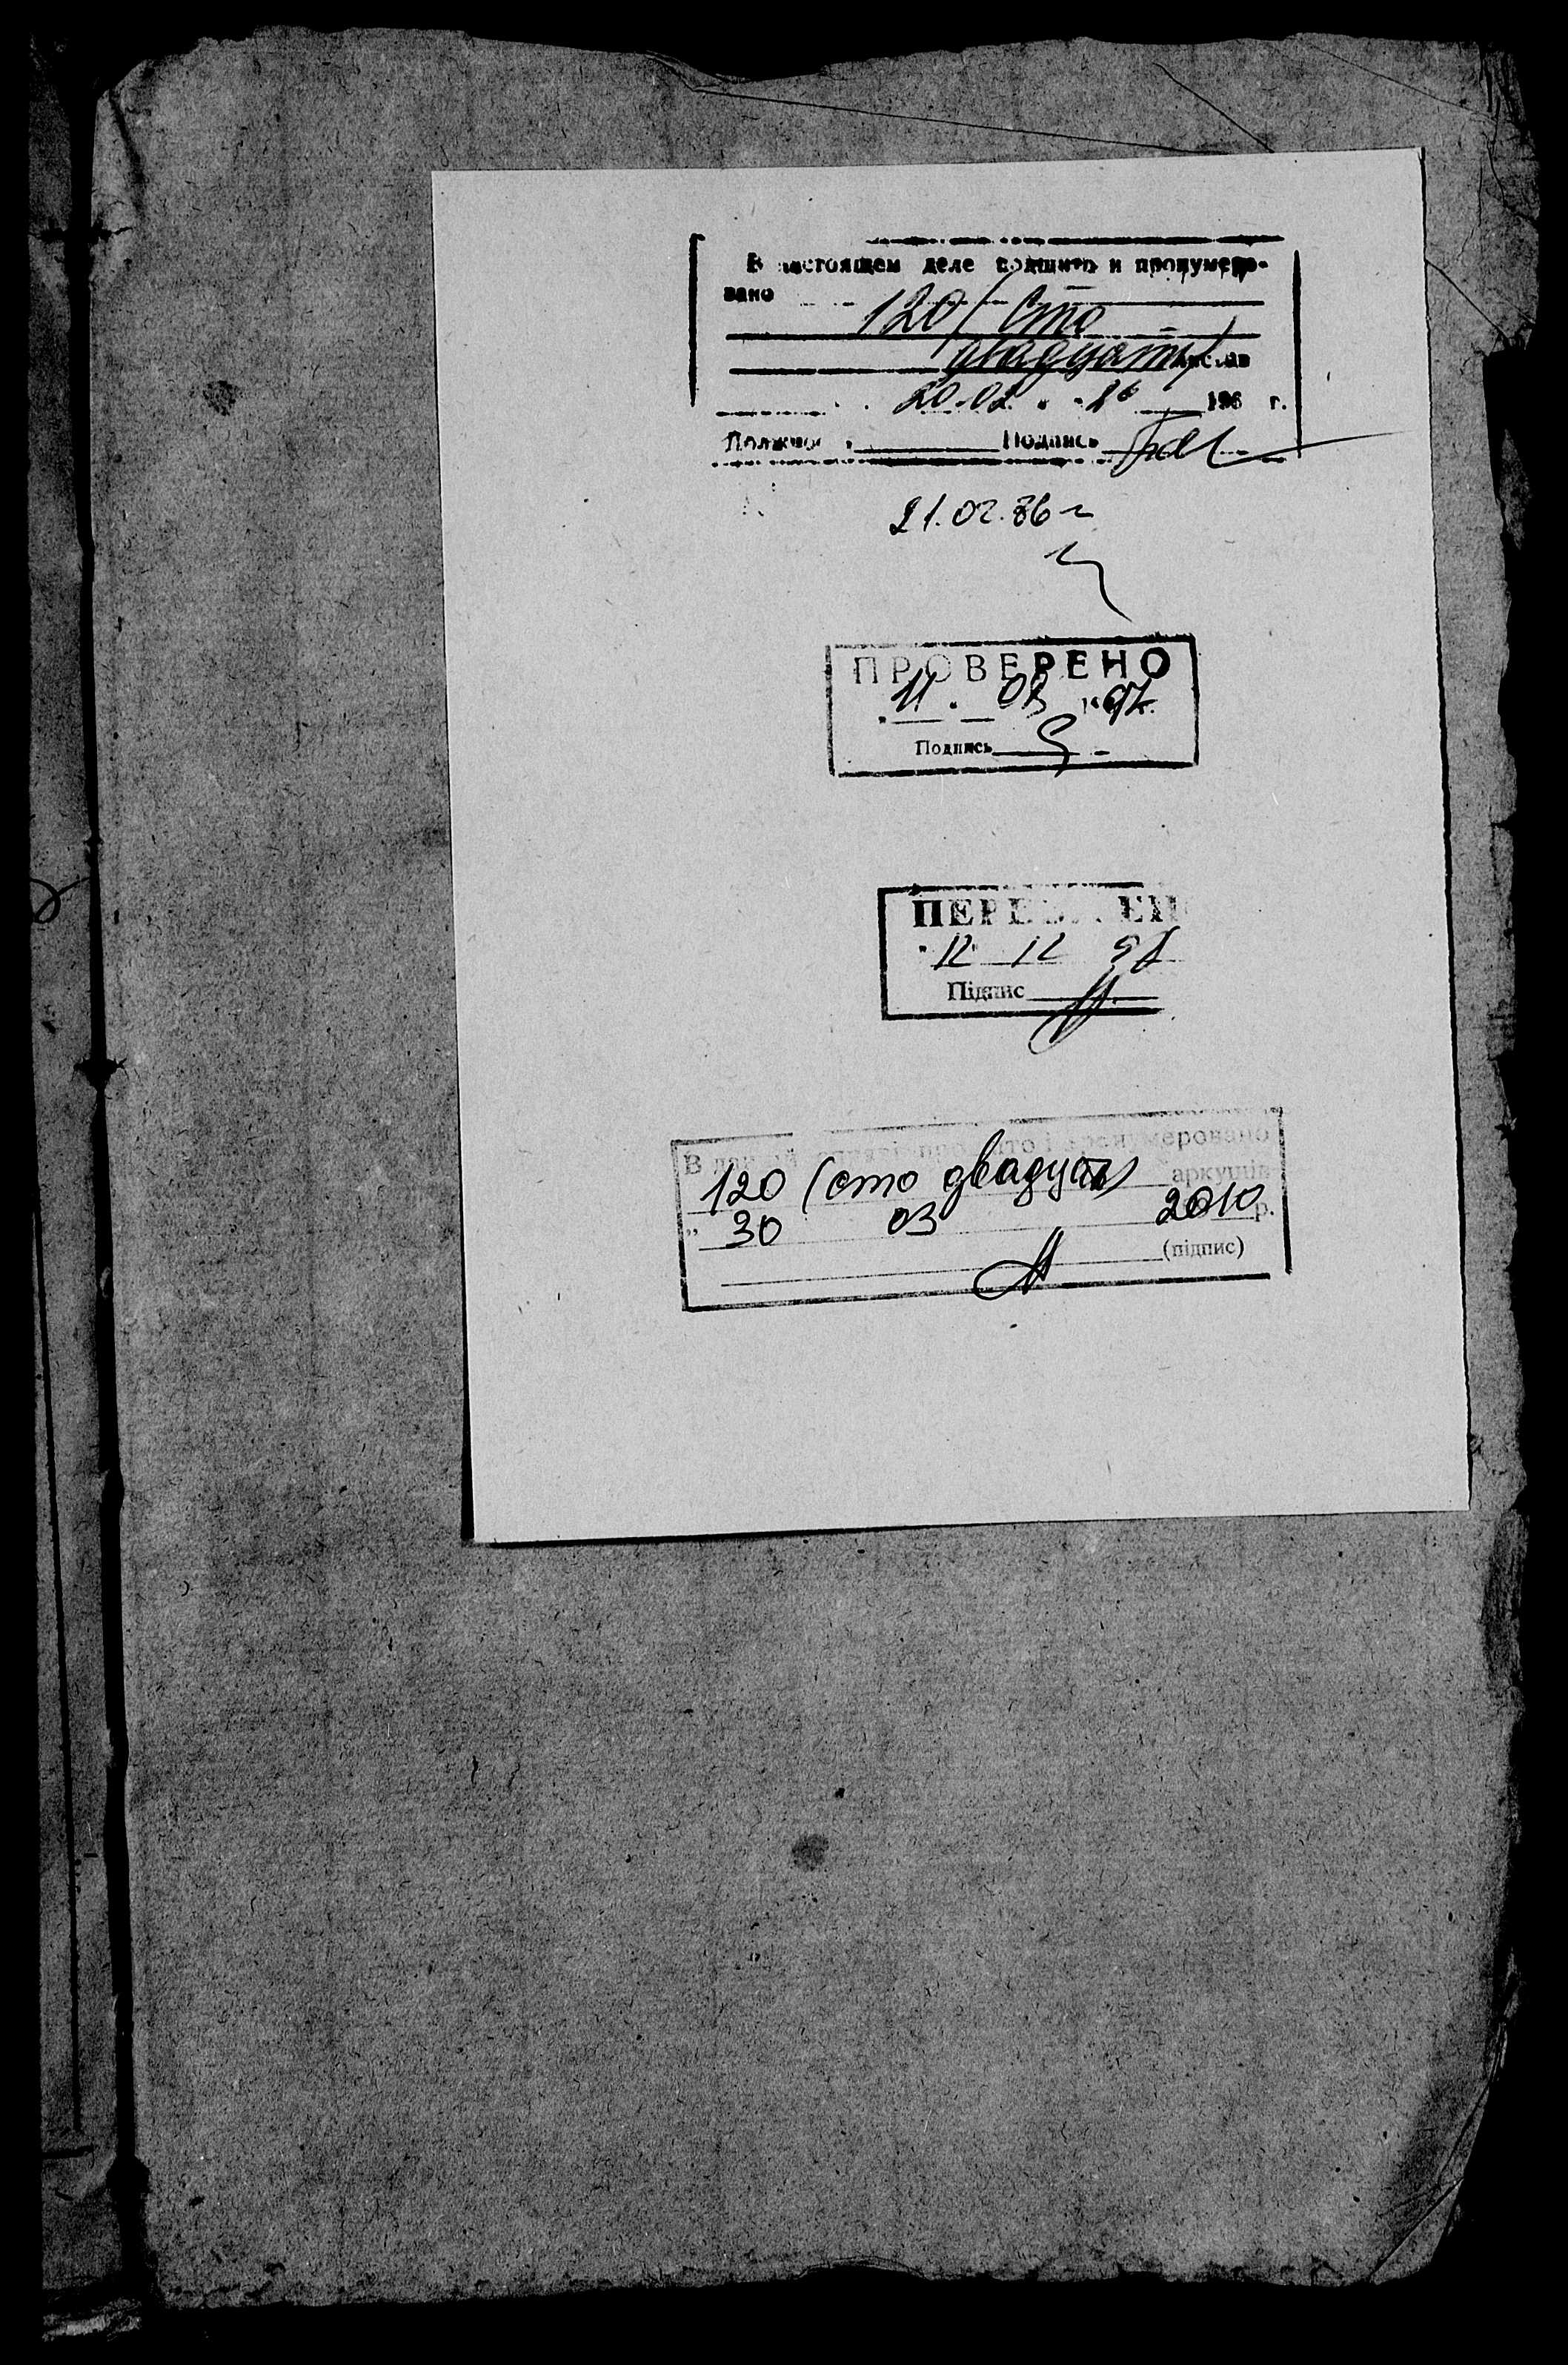 В настоящем деле подшито и пронумеро-
вано
120 / Сто
двадцать / листов
20.02. 86 198 г.
Подпись
21.02.86 г
ПРОВЕРЕНО
11. 97г.
Подпись
"12" 12
Підпис
В прошито і пронумеровано
120 (сто двадцать) аркушів
" 30 03 2010 р.
(підпис)